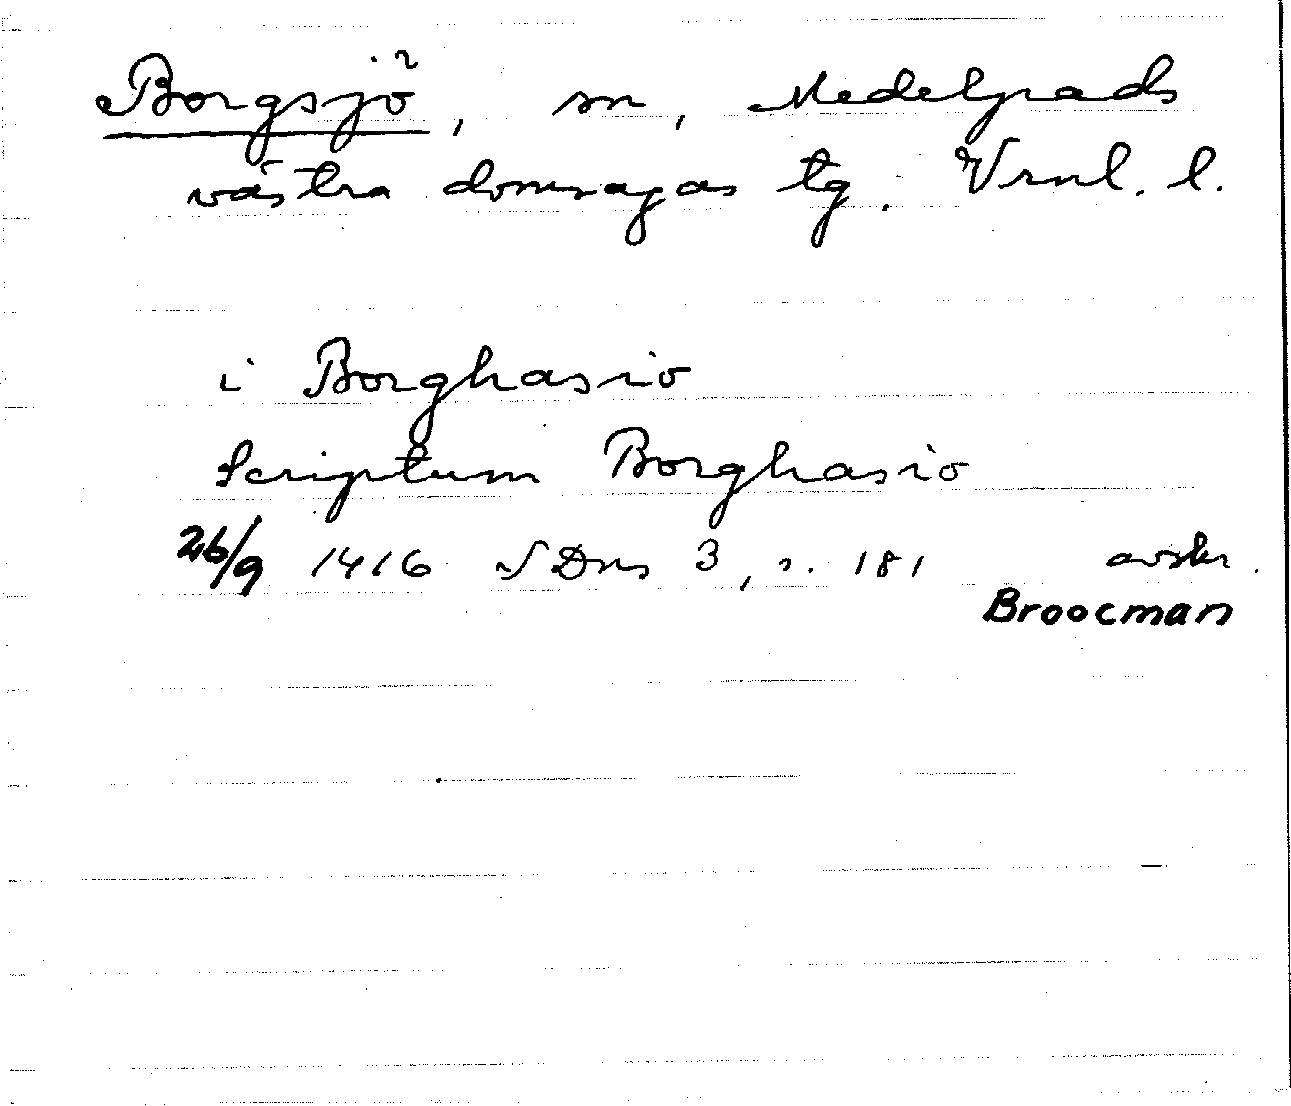 Borgsjö, sn, Medelpads
västra domsagas tg. Vrnl. l.
i Borghasio
Scriptum Borghasio
26/9 1416 SDns 3, s. 181 avskr.
Broocman